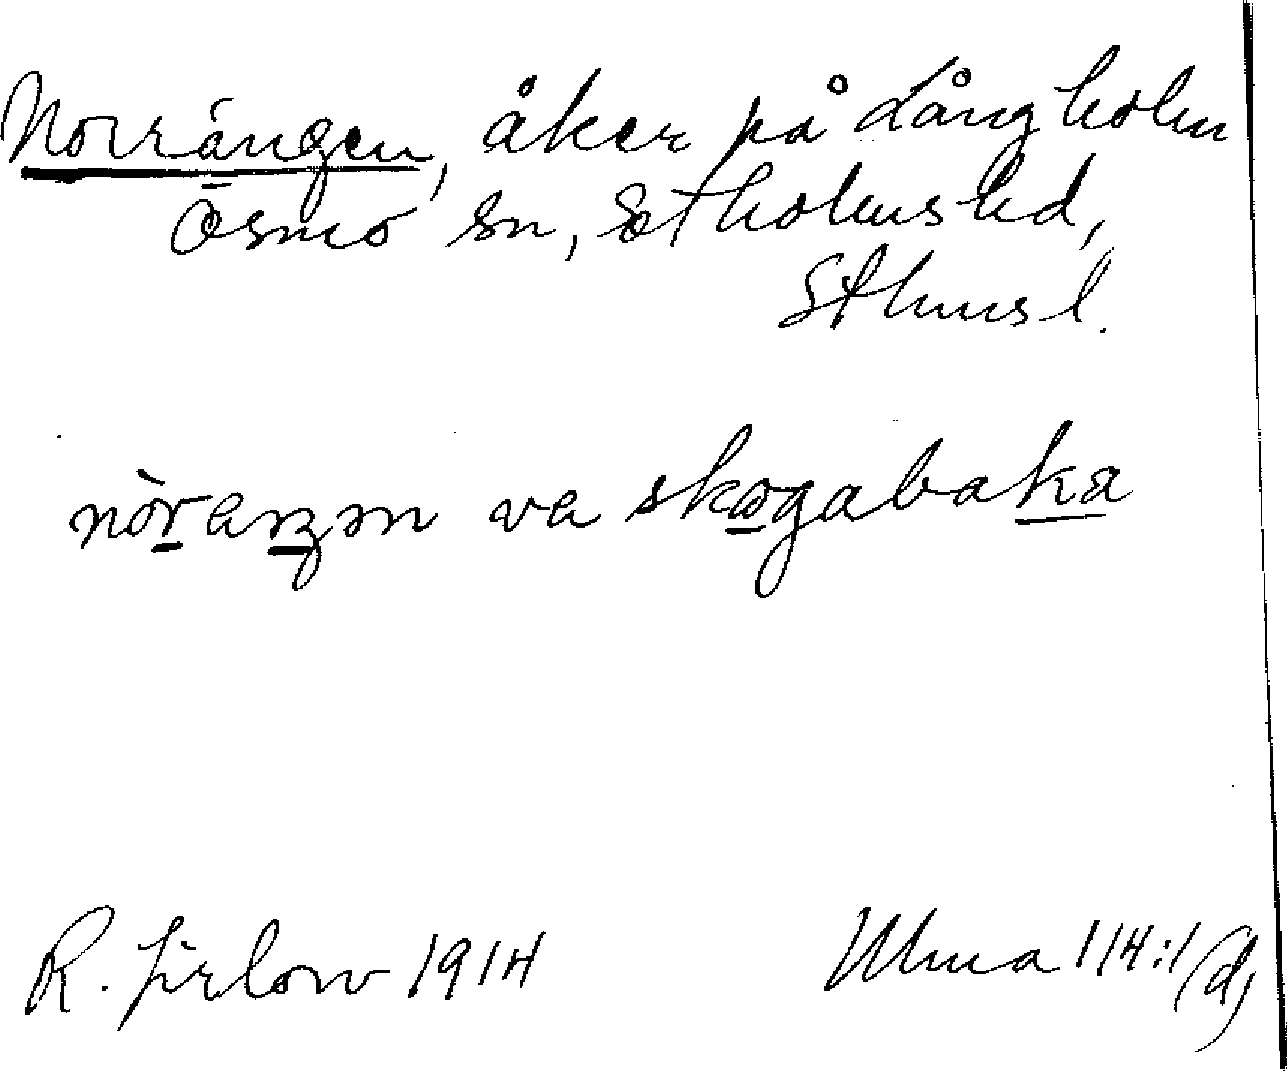 Norrängen, åker på Långholm
Ösmo sn, Sotholms hd,
Sthms l.
nòraŋən va skogabaka
R. Jirlow 1914
Ulma 114:1 (d)